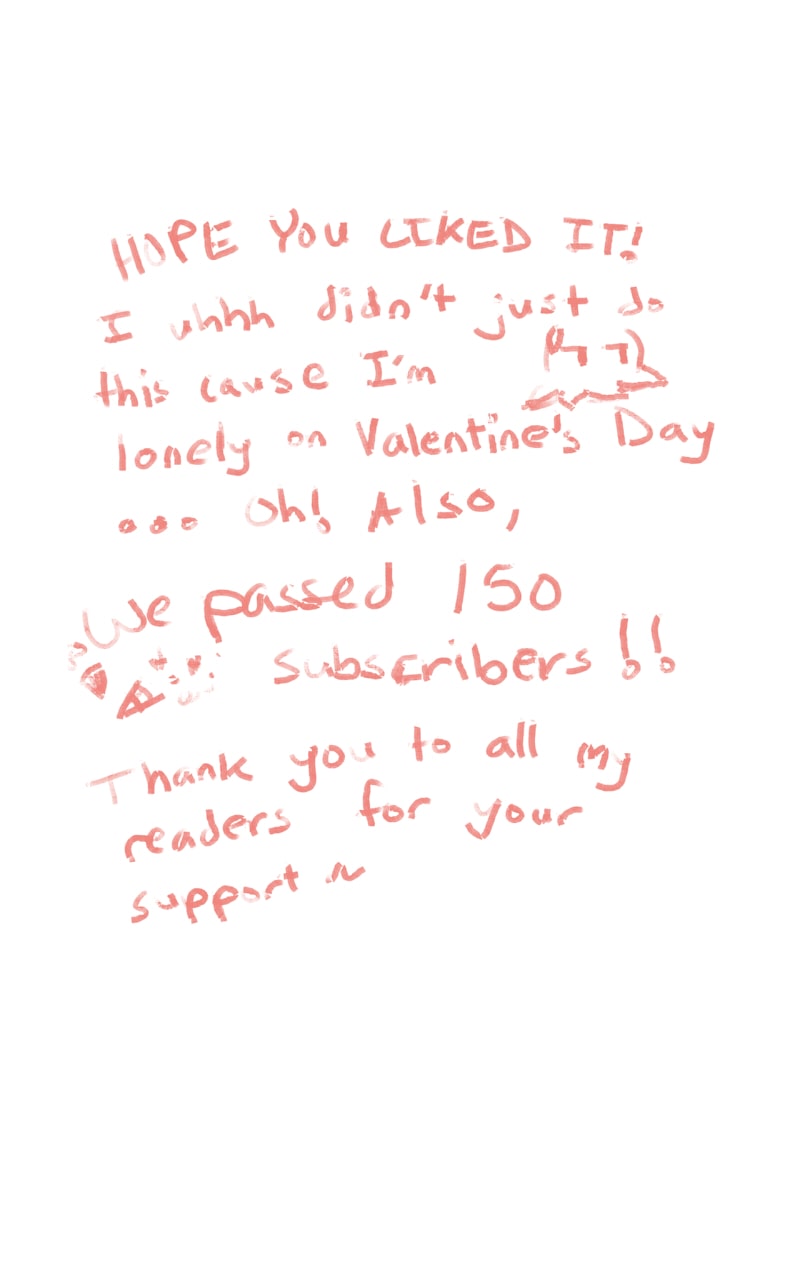 HOPE YOU LIKED IT!
I uhhh didn't just do
this cause I'm
lonely on Valentine's Day
... Oh! Also,
We passed 150
subscribers!!
Thank you to all my
readers for your
support ~